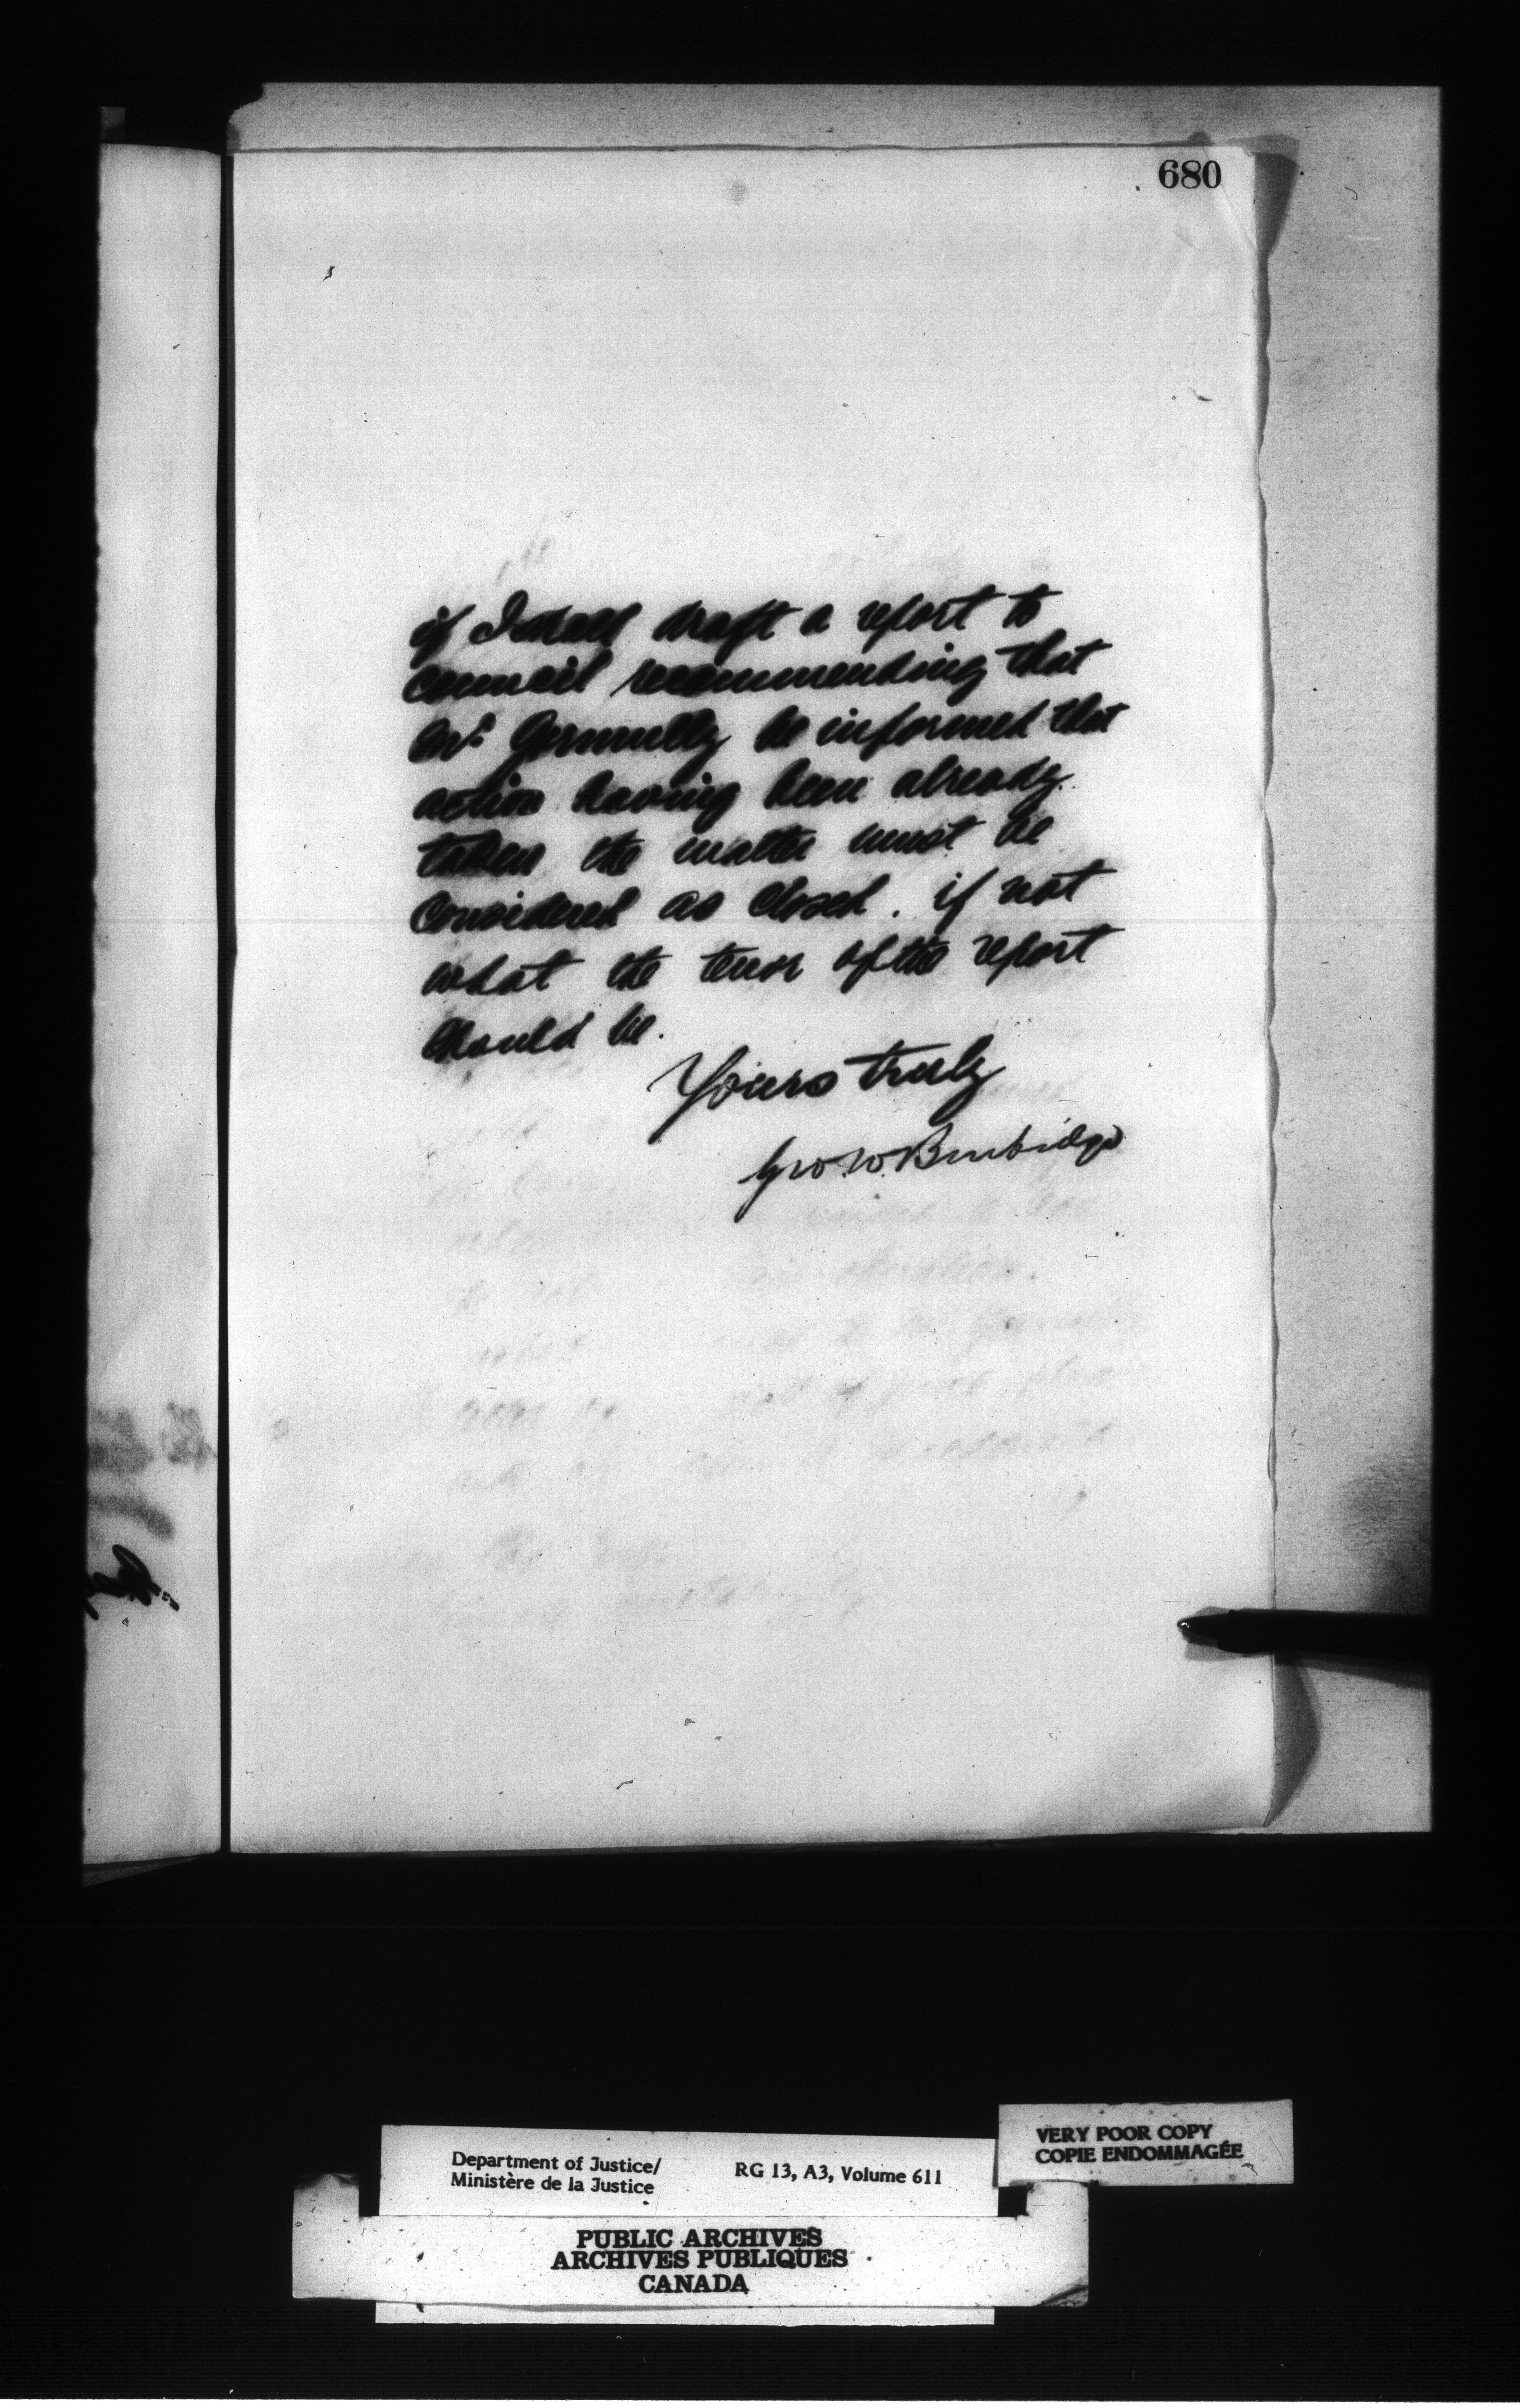 680
if I shall draft a report to
council recommending that
Mr. Gormully be informed that
action having been already
taken the matter must be
considered as closed. if not
what the tenor of the report
should be.
Yours truly
Geo. W. Burbidge
Department of Justice/
Ministère de la Justice
RG 13, A3, Volume 611
VERY POOR COPY
COPIE ENDOMMAGÉE
PUBLIC ARCHIVES
ARCHIVES PUBLIQUES
CANADA